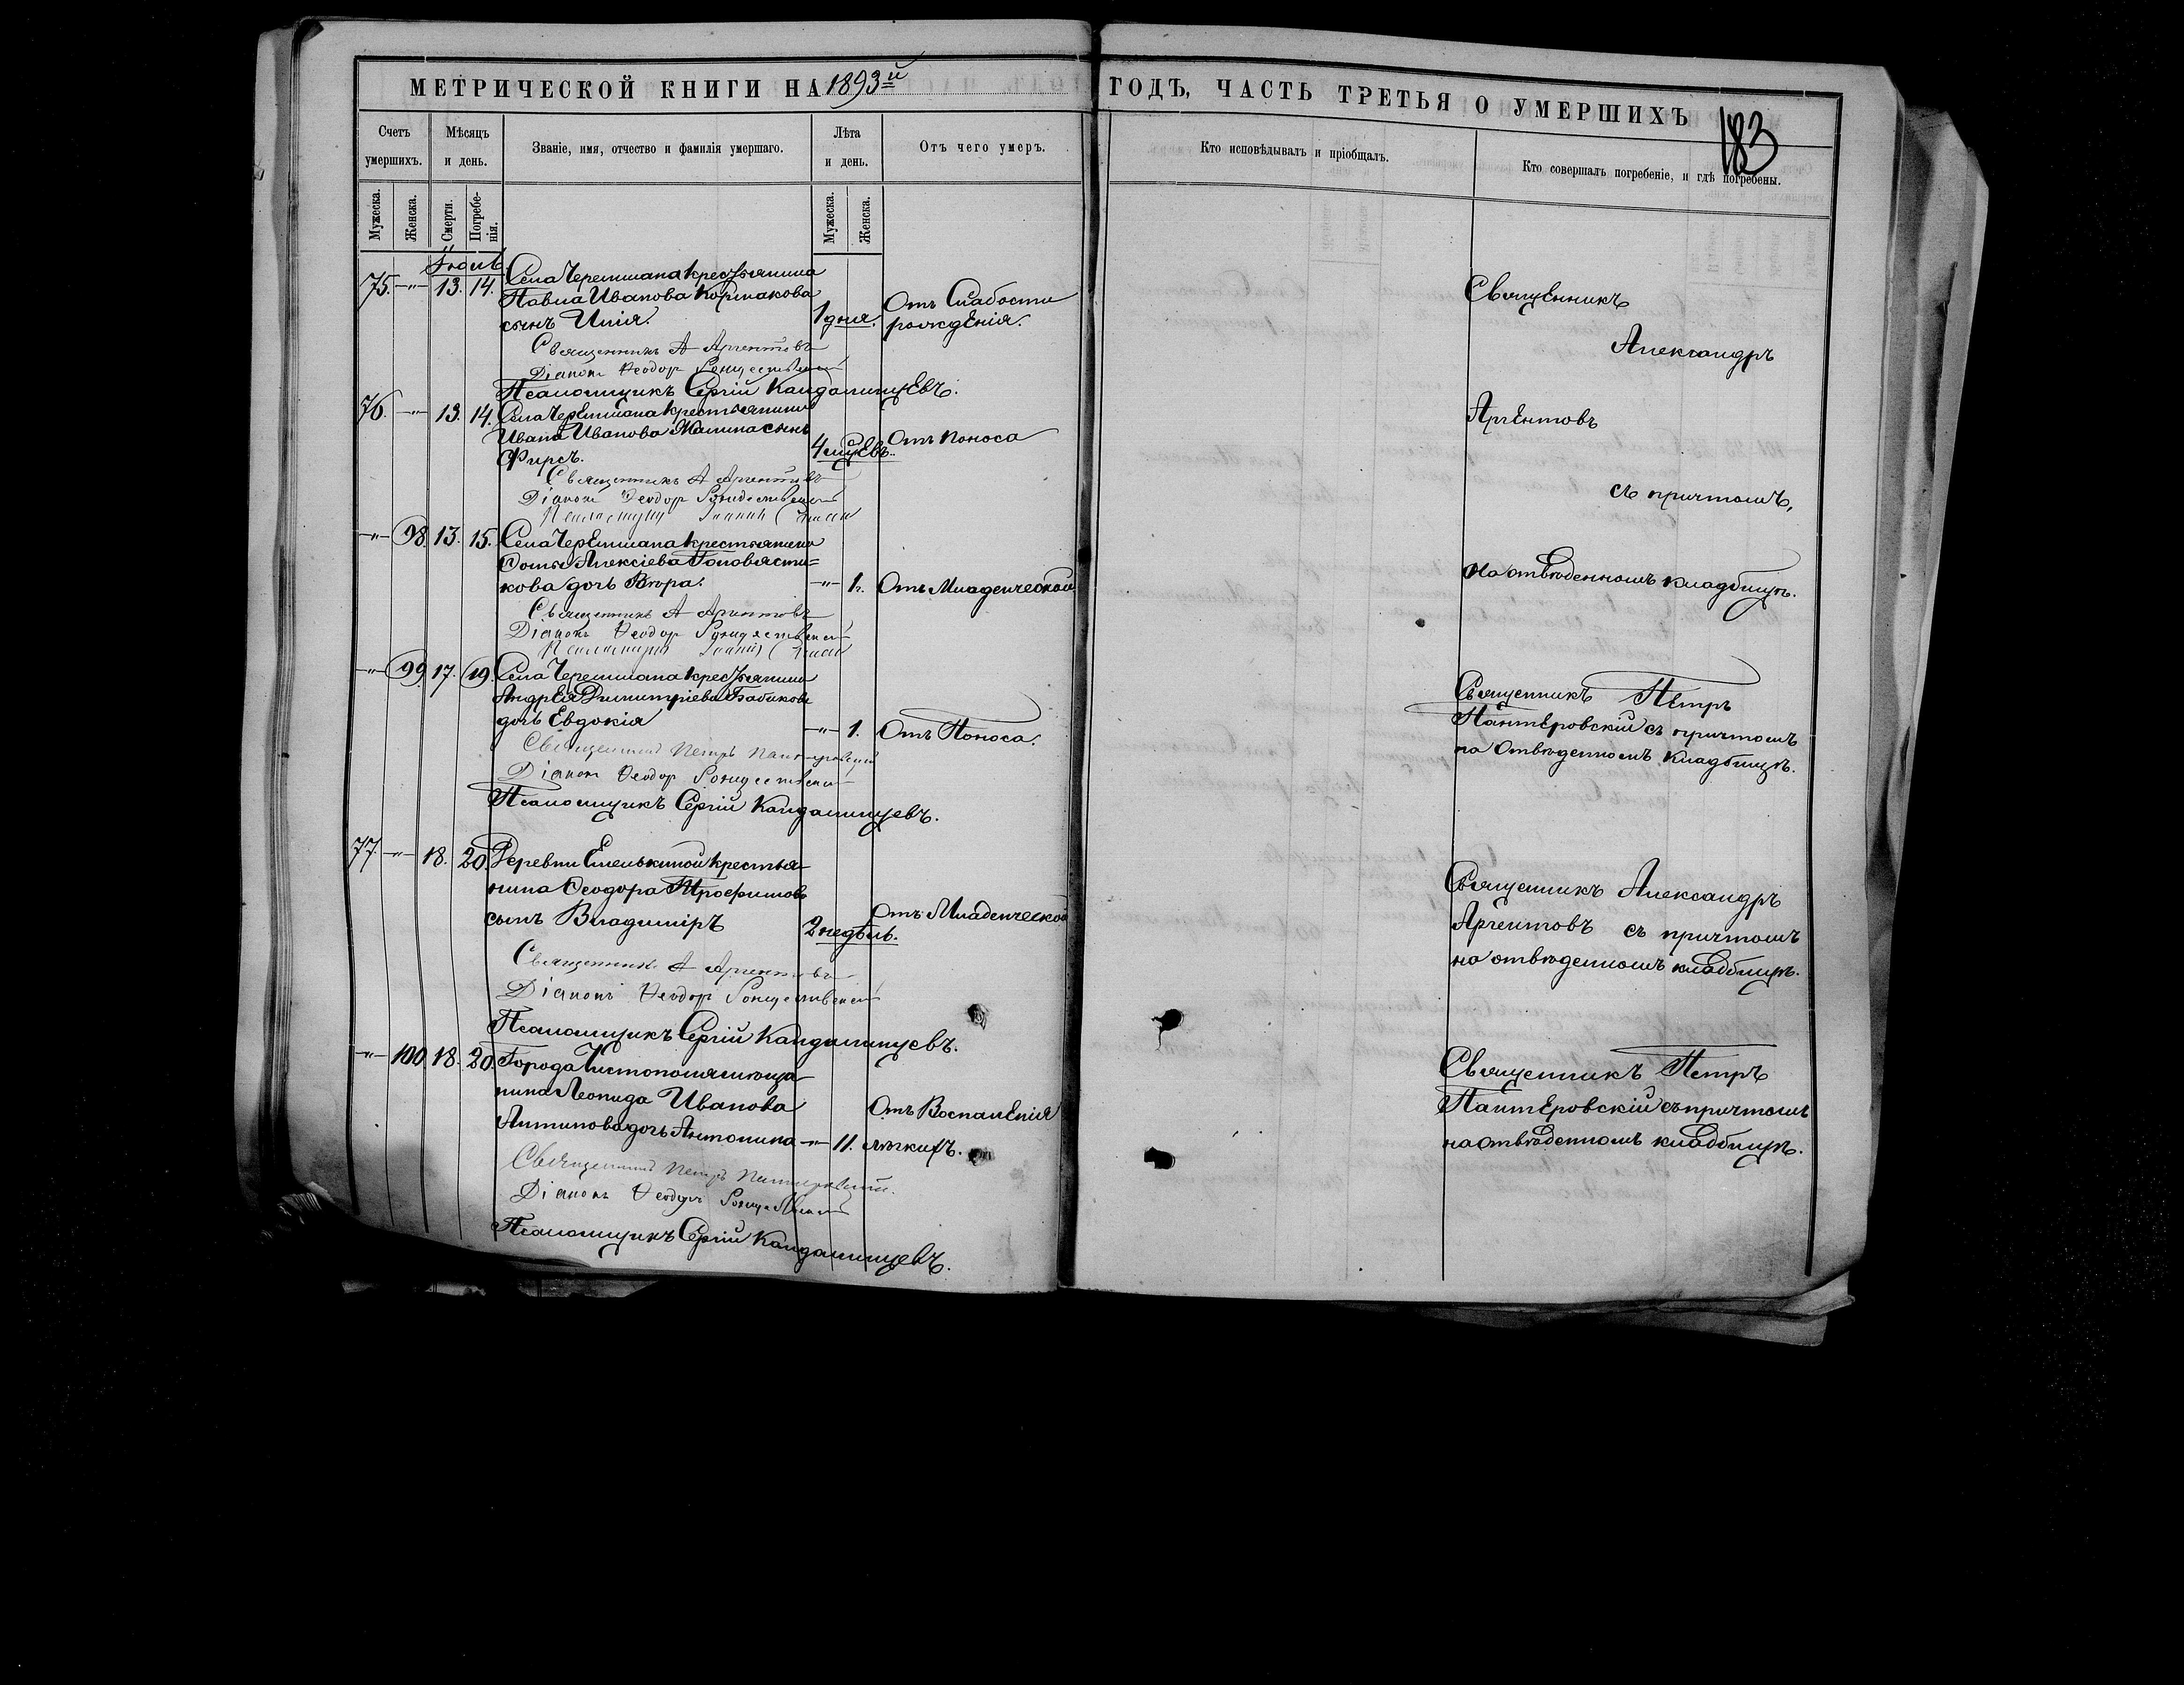 МЕТРИЧЕСКОЙ КНИГИ НА 1893й ГОДЪ, ЧАСТЬ ТРЕТЬЯ О УМЕРШИХЪ
183
Счетъ умершихъ.
Мѣсяцъ и день.
Званіе, имя, отчество и фамилія умершаго.
Лѣта и день.
Отъ чего умеръ.
Кто исповѣдывалъ и пріобщалъ.
Кто совершалъ погребеніе, и гдѣ погребены.
Мужеска.
Женска.
Смерти.
Погребе-
нія.
Мужеска.
Женска.
Іюль
75. —"— 13. 14. Села Черемшана крестьянина
Павла Иванова Кормакова
сынъ Илія.
1 дня.
Отъ Слабости
рожденія.
Священникъ А Аргентовъ
Діаконъ Ѳеодор Рождественскій
Псаломщикъ Сергій Кандалинцевъ.
Священникъ
Александръ
Аргентовъ
съ причтомъ,
на отвѣденномъ кладбищѣ.
76. —"— 13. 14. Села Черемшана крестьянина
Ивана Иванова Малина сынъ
Фирсъ.
4 мцевъ.
Отъ поноса
Священникъ А Аргентовъ
Діаконъ Ѳеодор Рождественскій
—"— 98. 13. 15. Села Черемшана крестьянина
Ѳомы Алексіева Головясти=
кова дочь Вѣра.
—"— 1.
Отъ Младенческой
Священникъ А Аргентовъ
Діаконъ Ѳеодор Рождественскій
—"— 99. 17. 19. Села Черемшана крестьянина
Андрея Димитріева Бабикова
дочь Евдокія
—"— 1.
Отъ Поноса.
Священникъ Петръ Пантеровскій
Діаконъ Ѳеодор Рождественскій
Псаломщикъ Сергій Кандалинцевъ.
Священникъ Петръ
Пантеровскій съ причтомъ
на отвѣденномъ кладбищѣ.
77. —"— 18. 20. Деревни Емелькиной крестья-
нина Ѳеодора Трофимова
сынъ Владиміръ
2 недѣль.
Отъ Младенческой
Священникъ А Аргентовъ
Діаконъ Ѳеодор Рождественскій
Псаломщикъ Сергій Кандалинцевъ.
Священникъ Александръ
Аргентовъ съ причтомъ
на отвѣденномъ кладбищѣ.
—"— 100. 18. 20. Города Чистополя мѣща-
нина Леонида Иванова
Антипова дочь Антонина
—"— 11.
Отъ Воспаленія
лѣгкихъ.
Священникъ Петръ Пантеровскій
Діаконъ Ѳеодоръ Рождественскій
Псаломщикъ Сергій Кандалинцевъ.
Священникъ Петръ
Пантеровскій съ причтомъ
на отвѣденномъ кладбищѣ.